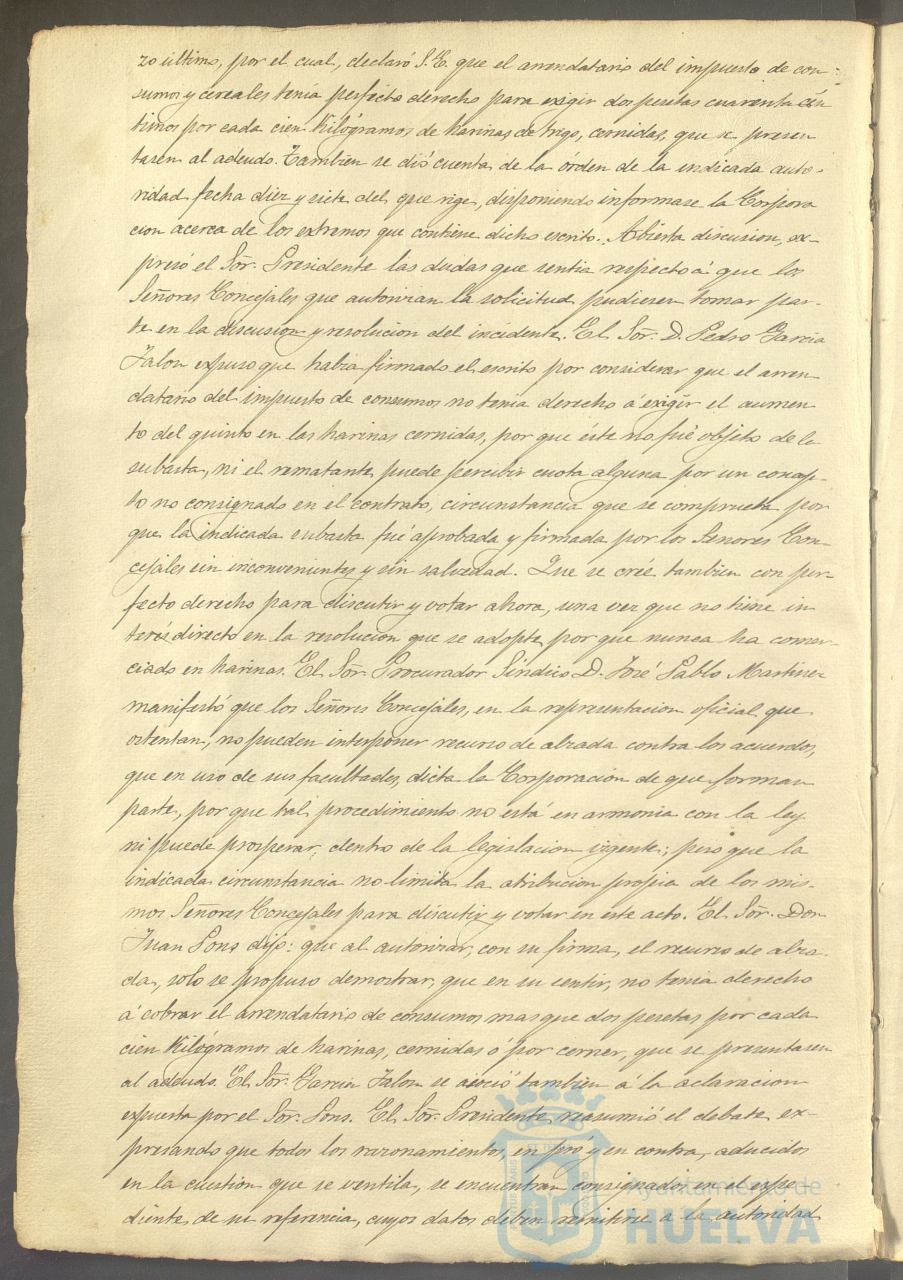 zo último, por el cual, declaró S.E. que el arrendatario del impuesto de con-
sumos y cereales tenia perfecto derecho para exigir dos pesetas cuarenta cén
timos por cada cien Kilógramos de harinas de trigo, cernidas, que se presen
tasen al adeudo. Tambien se dió cuenta de la órden de la indicada auto-
ridad fecha diez y siete del que rige, disponiendo informase la Corpora
cion acerca de los extremos que contiene dicho escrito. Abierta discusion, ex-
presó el Sór. Presidente las dudas que sentia respecto á que los
Señores Concejales que autorizan la solicitud, pudiesen tomar par-
te en la discusion y resolucion del incidente. El Sór. D. Pedro Garcia
Jalon expuso que habia firmado el escrito por considerar que el arren
datario del impuesto de consumos no tenia derecho á exigir el aumen
to del quinto en las harinas cernidas, por que éste no fué objeto de la
subasta, ni el rematante puede percibir cuota alguna por un concep-
to no consignado en el contrato, circunstancia que se comprueba por
que la indicada subasta fué aprobada y firmada por los Señores Con-
cejales sin inconvenientes y sin salvedad. Que se crée tambien con per-
fecto derecho para discutir y votar ahora, una vez que no tiene in
terés directo en la resolucion que se adopte, por que nunca ha comer-
ciado en harinas. El Sór. Procurador Síndico D. José Pablo Martinez
manifestó que los Señores Concejales, en la representacion oficial que
ostentan, no pueden interponer recurso de alzada contra los acuerdos,
que en uso de sus facultades, dicta la Corporacion de que forman
parte, por que tal procedimiento no está en armonia con la ley
ni puede prosperar, dentro de la legislacion vigente; pero que la
indicada circunstancia no limita la atribucion propia de los mis-
mos Señores Concejales para discutir y votar en este acto. El Sór. Don
Juan Pons dijo: que al autorizar, con su firma, el recurso de alza-
da, solo se propuso demostrar, que en su sentir, no tenia derecho
á cobrar el arrendatario de consumos mas que dos pesetas por cada
cien Kilógramos de harinas, cernidas ó por cerner, que se presentasen
al adeudo. El Sór. Garcia Jalon se asoció tambien á la aclaracion
expuesta por el Sór. Pons. El Sór. Presidente, reasumió el debate, ex-
presando que todos los razonamientos, en pró y en contra, aducidos
en la cuestion que se ventila, se encuentran consignados en el espe
diente de su referencia, cuyos datos deben remitirse á la autoridad
Ayuntamiento de
HUELVA